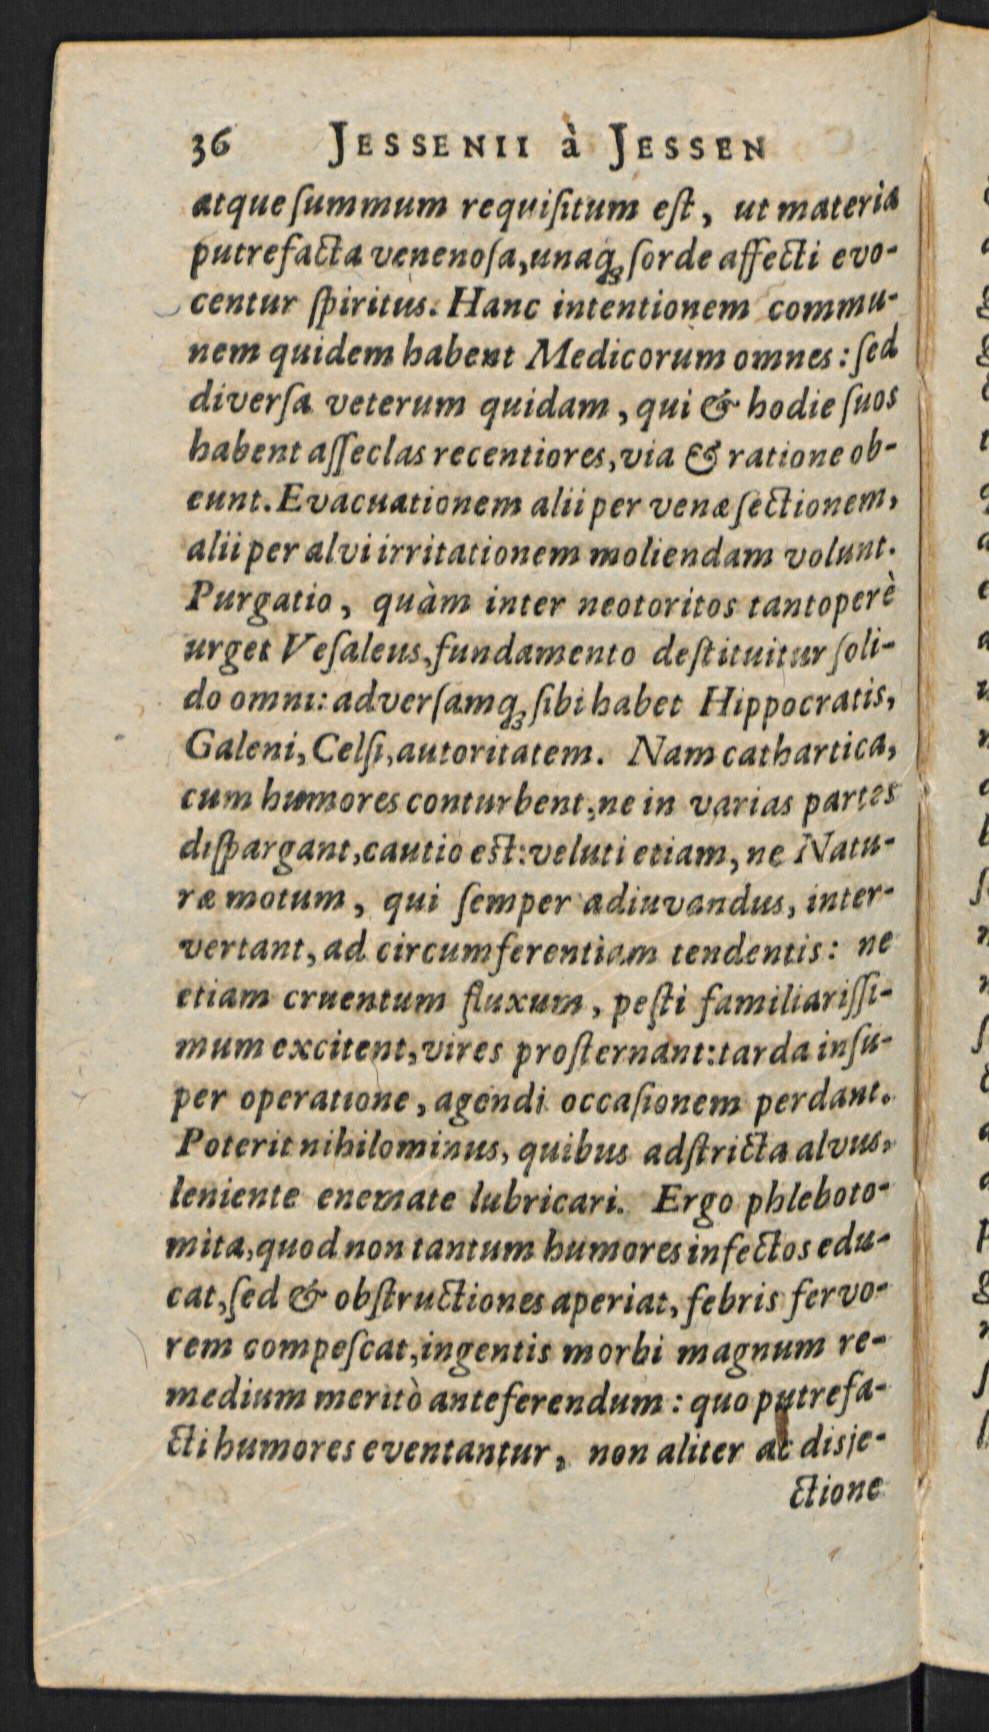 36 JESSENII à JESSEN
atque ſummum requiſitum eſt, ut materia
putrefacta venenoſa, unaq́ꝫ ſorde affecti evo-
centur ſpiritus. Hanc intentionem commu-
nem quidem habent Medicorum omnes: ſed
diverſa veterum quidam, qui & hodie ſuos
habent aſſeclas recentiores, via & ratione ob-
eunt. Evacuationem alii per venæ ſectionem,
alii per alvi irritationem moliendam volunt.
Purgatio, quàm inter neotoritos tantoperè
urget Veſaleus, fundamento deſtituitur ſoli-
do omni: adverſamq́ꝫ ſibi habet Hippocratis,
Galeni, Celſi, autoritatem. Nam cathartica,
cum humores conturbent, ne in varias partes
diſpargant, cautio eſt: veluti etiam, ne Natu-
ræ motum, qui ſemper adiuvandus, inter-
vertant, ad circumferentiam tendentis: ne
etiam cruentum fluxum, peſti familiariſſi-
mum excitent, vires proſternant: tarda inſu-
per operatione, agendi occaſionem perdant.
Poterit nihilominus, quibus adſtricta alvus,
leniente enemate lubricari. Ergo phleboto-
mita, quod non tantum humores infectos edu-
cat, ſed & obſtructiones aperiat, febris fervo-
rem compeſcat, ingentis morbi magnum re-
medium meritò anteferendum: quo putrefa-
cti humores eventantur, non aliter ac disje-
ctione